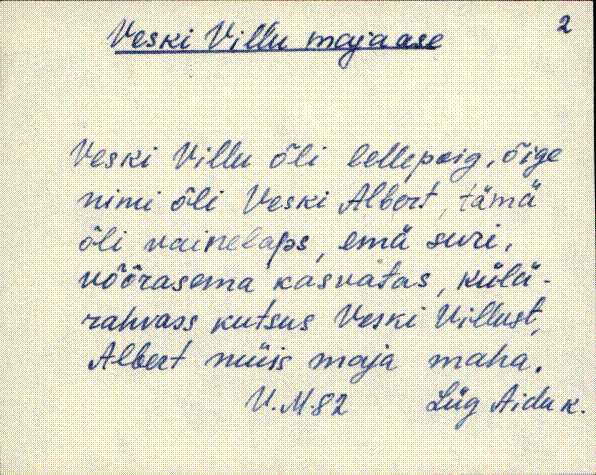 Veski Villu majaase
2
Veski Villu õli lellepoig, õige
nimi õli Veski Albert, tämä
õli vainelaps, emä suri,
võõrasema kasvatas, külü-
rahvass kutsus Veski Villust,
Albert müis maja maha.
V.M.82 Lüg Aidu k.